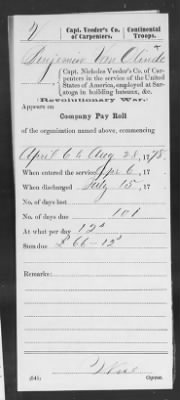 V | Capt. Veeder's Co. of Carpenters. | Continental Troops.
Benjamin Van Olinde
Capt. Nicholas Veeder's Co. of Car-
penters in the service of the United
States of America, employed at Sar-
atoga in building batteaux, &c.
(Revolutionary War.)
Appears on
Company Pay Roll
of the organization named above, commencing
April 6 to Aug 28, 1778.
When entered the service Apr 6, 17
When discharged July 15, 17
No. of days lost
No. of days due 101
At what per day 12s
Sum due £ 66-12s
Remarks:
(541) Copyist.